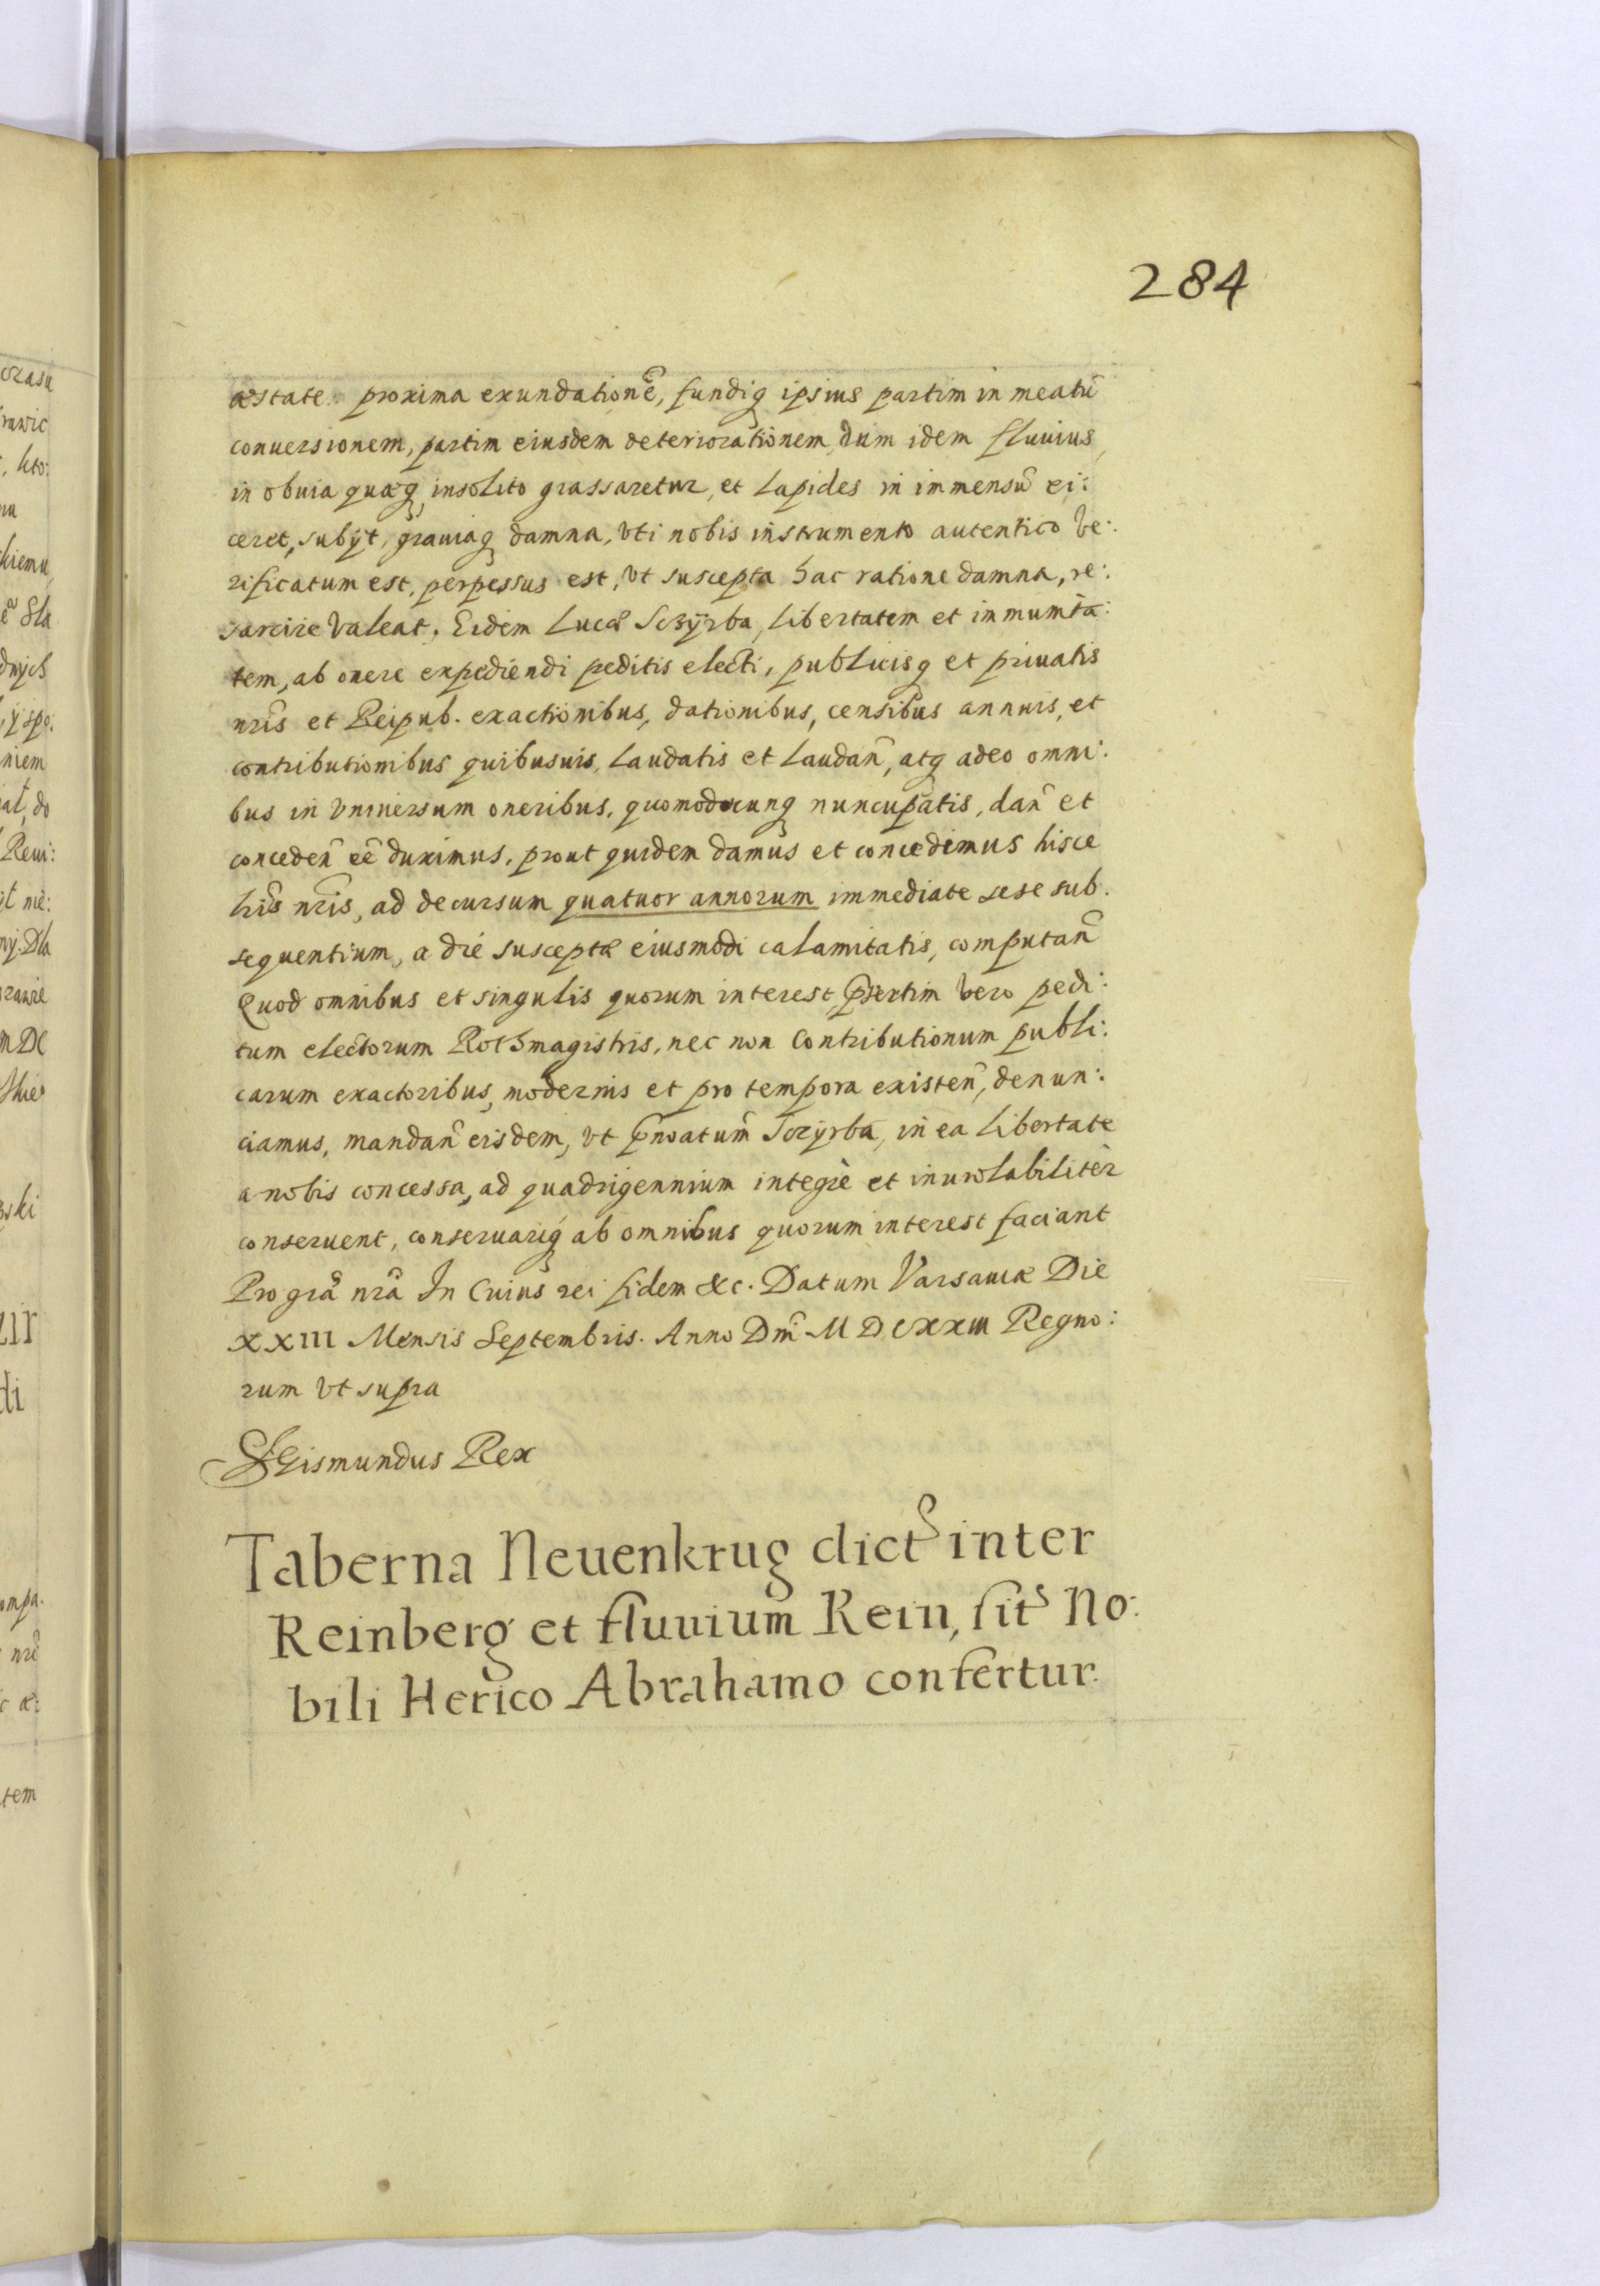 284
æstate proxima exundationẽ, fundiq ipsius partim in meatũ
conuersionem, partim eiusdem deteriorationem, dum idem fluuius,
in obuia quæq, insolito grassaretur, et lapides in immensũ ei:
ceret, subÿt, grauiaq damna, vti nobis instrumento autentico ve:
rificatum est, perpessus est, vt suscepta hac ratione damna, re:
sarcire valeat. Eidem Lucæ Sczÿrba, libertatem et immunita:
tem, ab onere expediendi peditis electi, publicisq et priuatis
nr̃is et Reipub. exactionibus, dationibus, censibus annuis, et
contributionibus quibusuis, laudatis et laudañ, atq adeo omni:
bus in vniuersum oneribus, quomodocunq nuncupatis, dañ et
concedeñ eẽ duximus, prout quidem damus et concedimus hisce
lr̃is nr̃is, ad decursum quatuor annorum immediate sese sub.
sequentium, a die susceptæ eiusmodi calamitatis, computañ
Quod omnibus et singulis quorum interest, p̃sertim vero pedi:
tum electorum Rothmagistris, nec non Contributionum publi:
carum exactoribus, modernis et pro tempora existeñ, denun:
ciamus, mandañ eisdem, vt p̃noatum Sczÿrba, in ea libertate
a nobis concessa, ad quadrigennium integrè et inuiolabilitèr
conseruent, conseruariq ab omnibus quorum interest faciant
Pro gr̃a nr̃a In Cuius rei fidem &c. Datum Varsauiæ Die
XXIII Mensis Septembris. Anno Dñi M DCXXIII Regno:
rum vt supra
Sigismundus Rex
Taberna Neuenkrug dict inter
Reinberg et fluuium Rein, sit No:
bili Herico Abrahamo confertur.